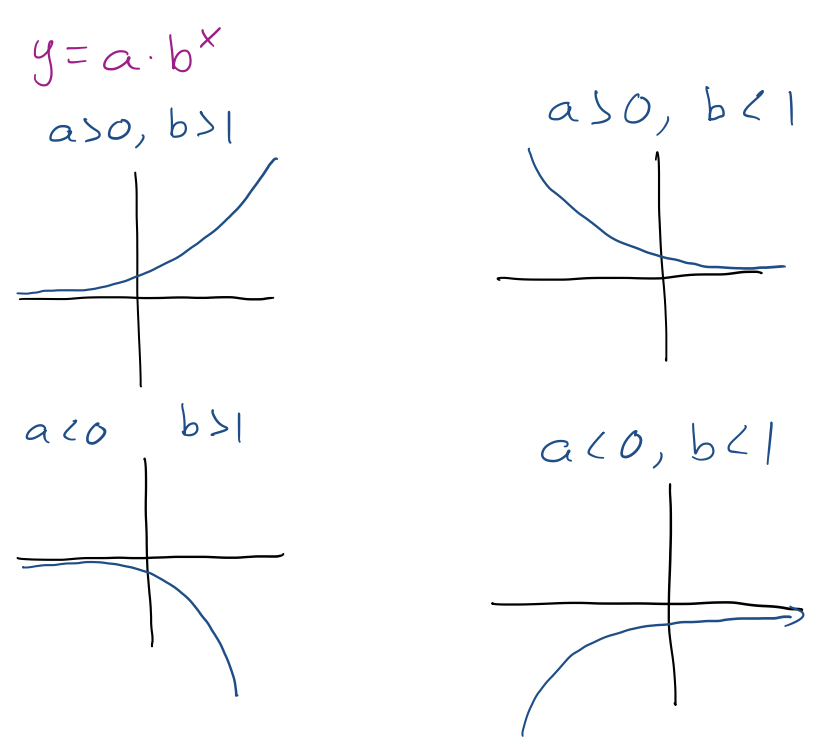 y = a · b^x
a>0, b>1
a>0, b<1
a<0 b>1
a<0, b<1